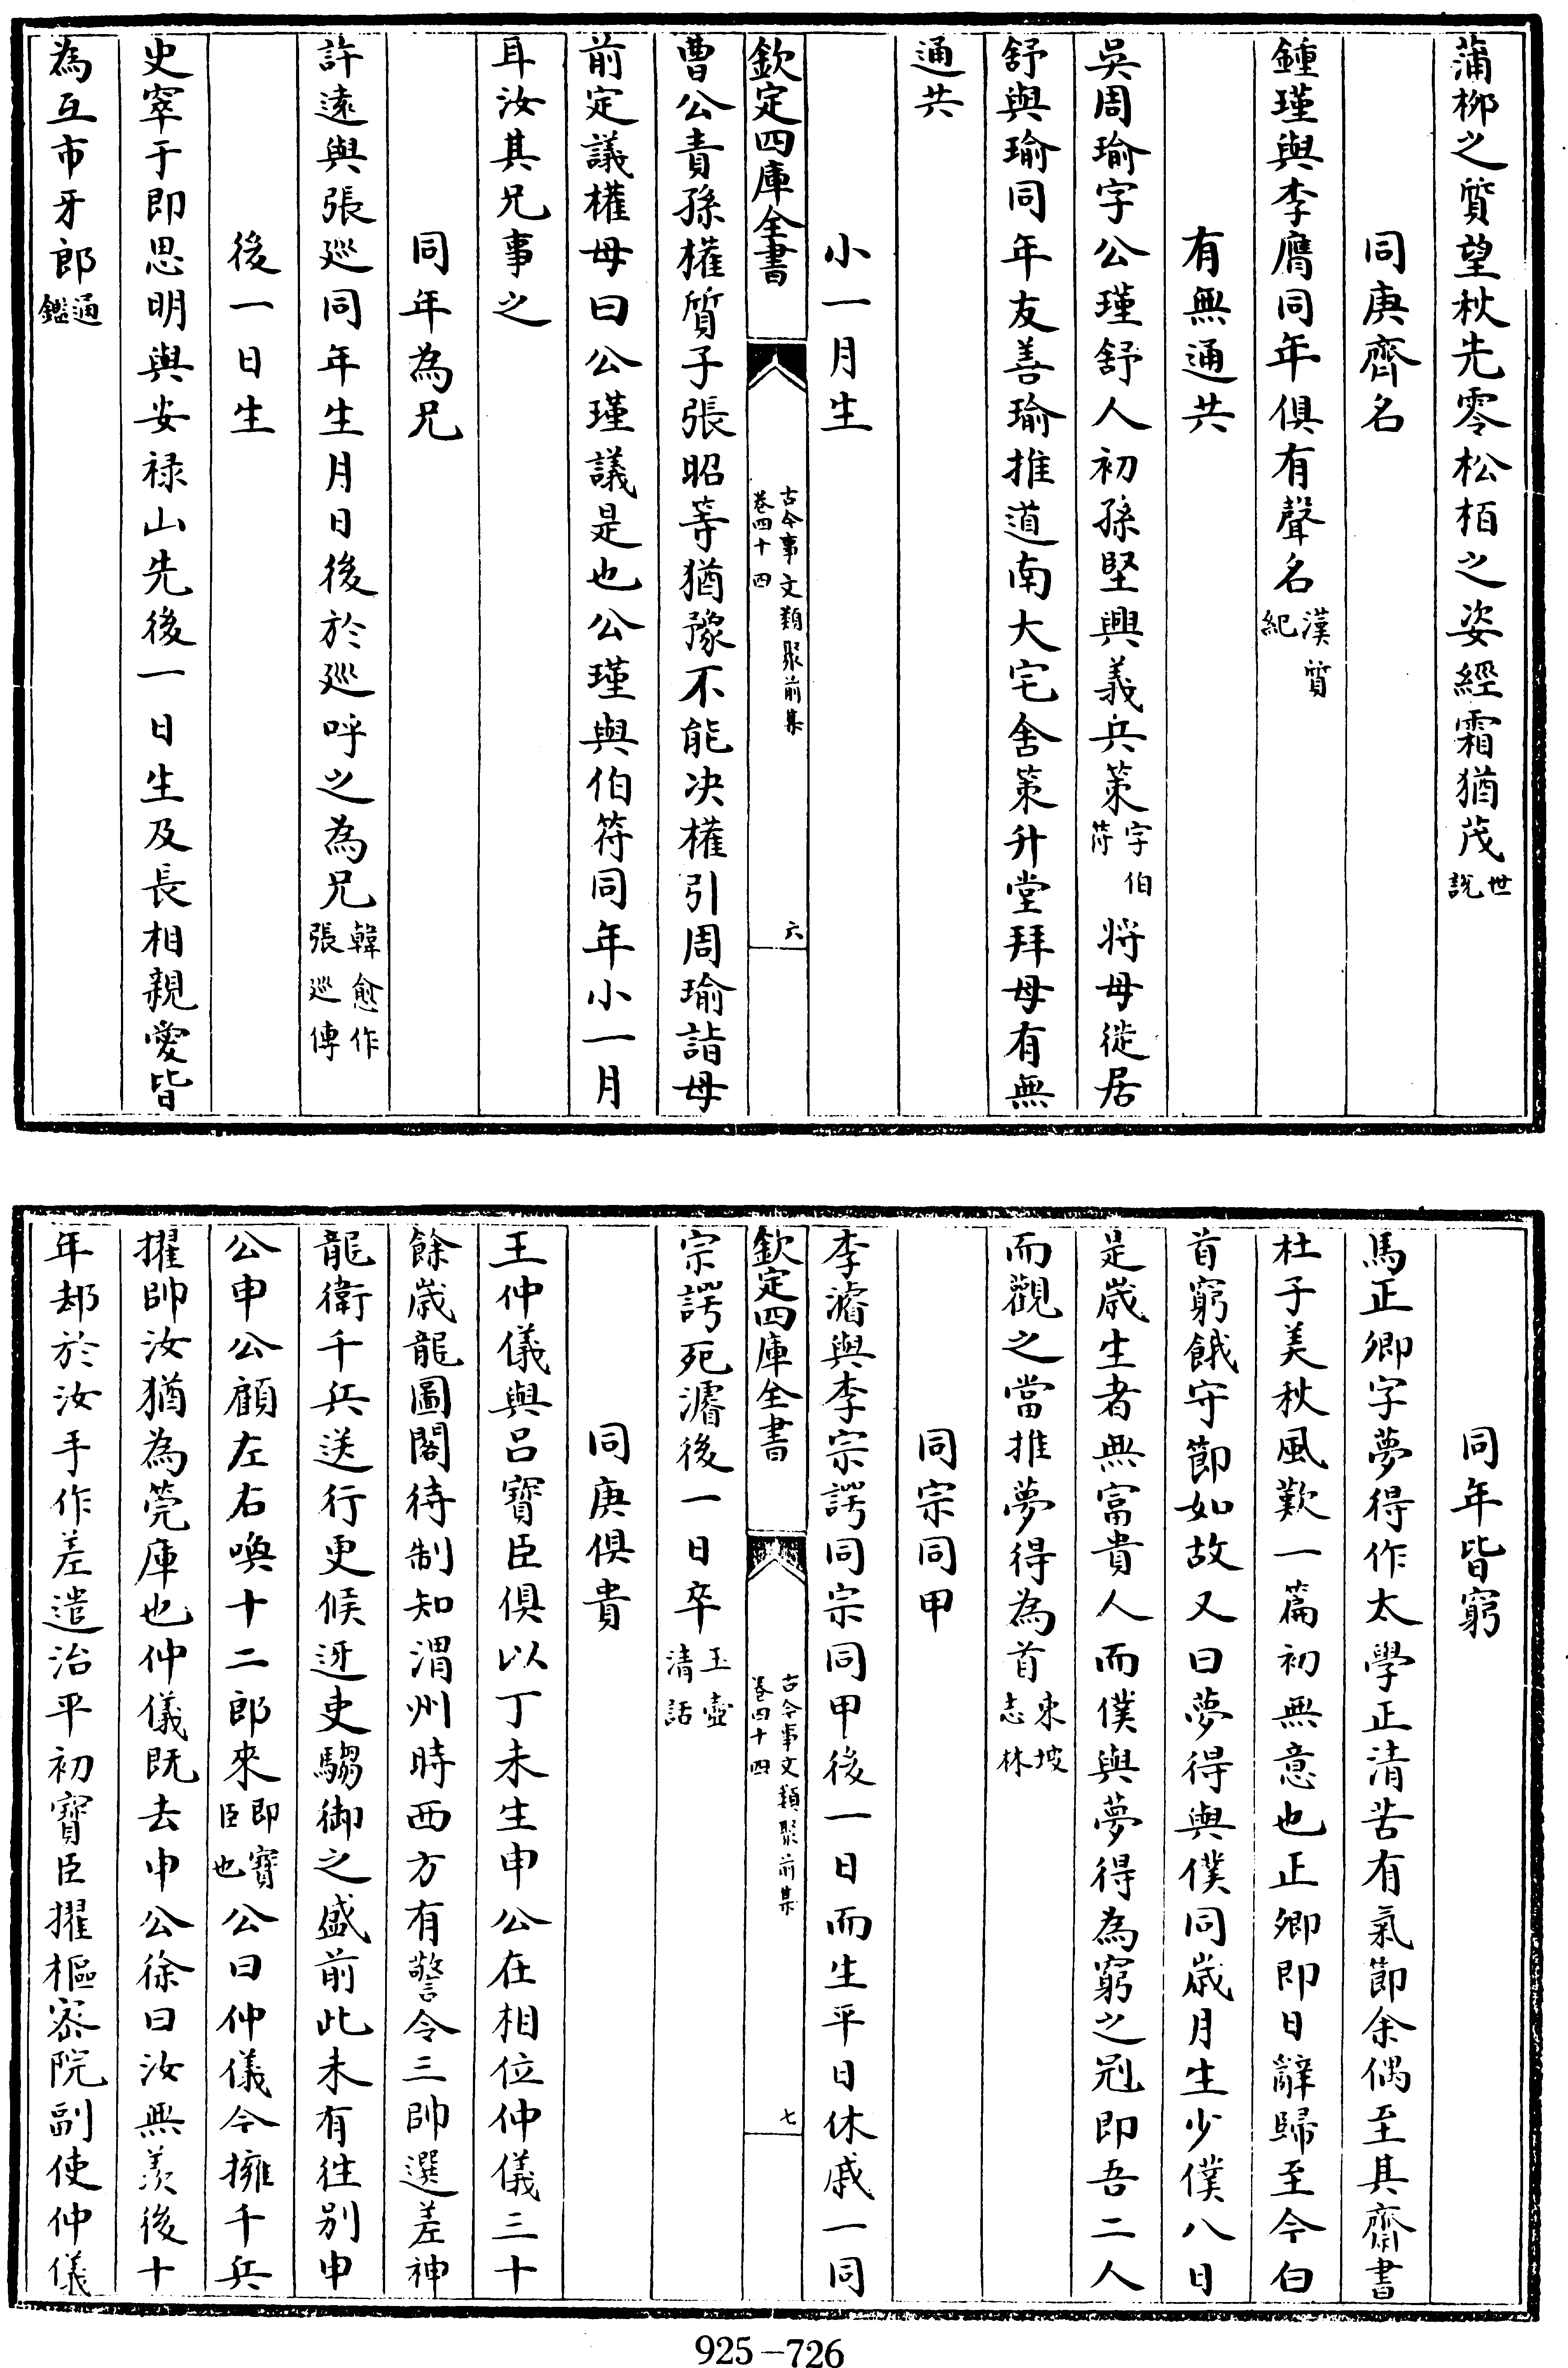 蒲柳之質望秋先零松栢之姿經霜猶茂世説
同庚齊名
鍾瑾與李膺同年俱有聲名漢質紀
有無通共
吳周瑜字公瑾舒人初孫堅興義兵策字伯符將母徙居
舒與瑜同年友善瑜推道南大宅舍策升堂拜母有無
通共
小一月生
欽定四庫全書
古今事文類聚前集
卷四十四
六
曹公責孫權質子張昭等猶豫不能决權引周瑜詣母
前定議權母曰公瑾議是也公瑾與伯符同年小一月
耳汝其兄事之
同年為兄
許逺與張廵同年生月日後於廵呼之為兄韓愈作張廵傳
後一日生
史窣于即思明與安禄山先後一日生及長相親愛皆
為互市牙郎通鑑
同年皆窮
馬正卿字夢得作太學正清苦有氣節余偶至其齋書
杜子美秋風歎一篇初無意也正卿即日辭歸至今白
首窮餓守節如故又曰夢得與僕同歲月生少僕八日
是歲生者無富貴人而僕與夢得為窮之冠即吾二人
而觀之當推夢得為首東坡志林
同宗同甲
李濬與李宗諤同宗同甲後一日而生平日休戚一同
欽定四庫全書
古今事文類聚前集
卷四十四
七
宗諤死濬後一日卒玉壺清話
同庚俱貴
王仲儀與吕寳臣俱以丁未生申公在相位仲儀三十
餘歲龍圖閣待制知渭州時西方有警令三帥選差神
龍衛千兵送行更候迓吏騶御之盛前此未有徃别申
公申公顧左右喚十二郎來即寳臣也公曰仲儀今擁千兵
擢帥汝猶為筦庫也仲儀既去申公徐曰汝無羡後十
年却於汝手作差遣治平初寳臣擢樞宻院副使仲儀
925-726